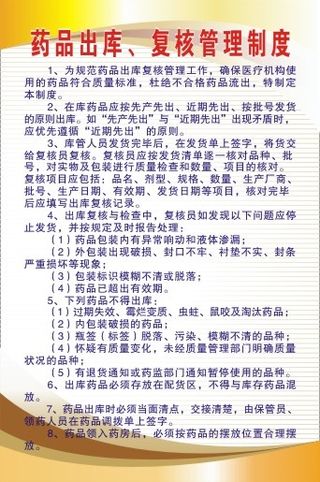 药品出库、复核管理制度
1、为规范药品出库复核管理工作，确保医疗机构使
用的药品符合质量标准，杜绝不合格药品流出，特制定
本制度。
2、在库药品应按先产先出、近期先出、按批号发货
的原则出库。如“先产先出”与“近期先出”出现矛盾时，
应优先遵循“近期先出”的原则。
3、库管人员发货完毕后，在发货单上签字，将货交
给复核员复核。复核员应按发货清单逐一核对品种、批
号，对实物及包装进行质量检查和数量、项目的核对。
复核项目应包括：品名、剂型、规格、数量、生产厂商、
批号、生产日期、有效期、发货日期等项目，核对完毕
后应填写出库复核记录。
4、出库复核与检查中，复核员如发现以下问题应停
止发货，并按规定及时报告处理：
（1）药品包装内有异常响动和液体渗漏；
（2）外包装出现破损、封口不牢、衬垫不实、封条
严重损坏等现象；
（3）包装标识模糊不清或脱落；
（4）药品已超出有效期。
5、下列药品不得出库：
（1）过期失效、霉烂变质、虫蛀、鼠咬及淘汰药品；
（2）内包装破损的药品；
（3）瓶签（标签）脱落、污染、模糊不清的品种；
（4）怀疑有质量变化，未经质量管理部门明确质量
状况的品种；
（5）有退货通知或药监部门通知暂停使用的品种。
6、出库药品必须存放在配货区，不得与库存药品混
放。
7、药品出库时必须当面清点，交接清楚，由保管员、
领药人员在药品调拨单上签字。
8、药品领入药房后，必须按药品的摆放位置合理摆
放。